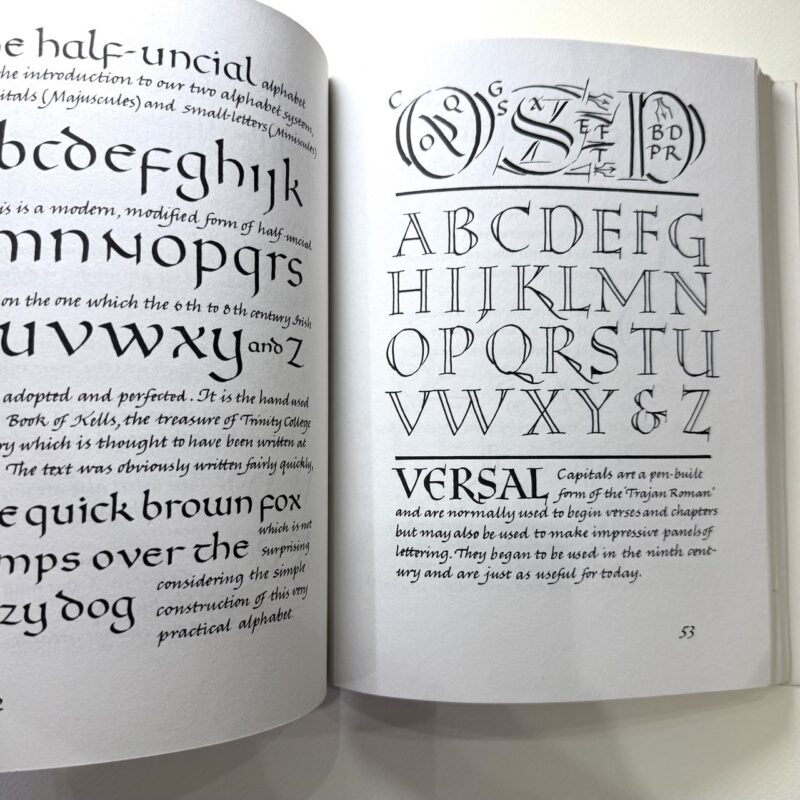 e half-uncial alphabet
he introduction to our two alphabet system,
itals (Majuscules) and small-letters (Miniscules)
bcdefghijk
is is a modern, modified form of half-uncial
mnNopqrs
on the one which the 6th to 8th century Irish
uvwxy and z
adopted and perfected. It is the hand used
Book of Kells, the treasure of Trinity College
ry which is thought to have been written at
The text was obviously written fairly quickly,
e quick brown fox
which is not
mps over the surprising
considering the simple
zy dog construction of this very
practical alphabet.
C O Q G S X E F T D B D P R
ABCDEFG
HIJKLMN
OPQRSTU
VWXY & Z
VERSAL Capitals are a pen-built
form of the 'Trajan Roman'
and are normally used to begin verses and chapters
but may also be used to make impressive panels of
lettering. They began to be used in the ninth cent-
ury and are just as useful for today.
53